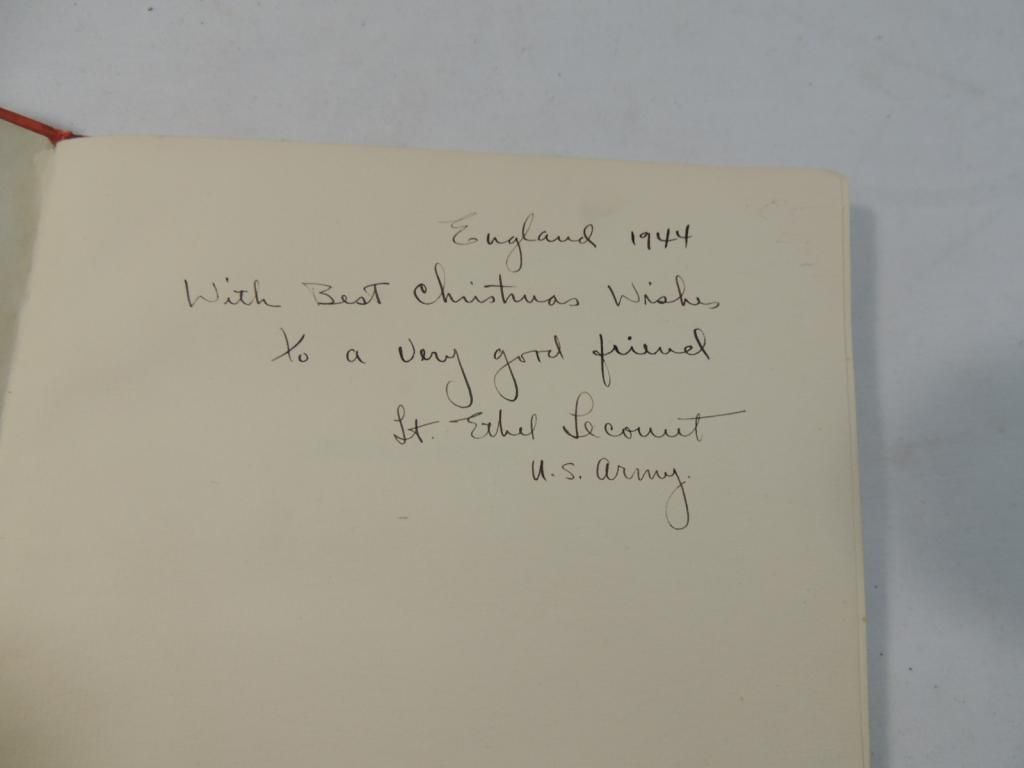 England 1944
With Best Christmas Wishes
To a very good friend
Lt. Ethel Lecount
U.S. Army.